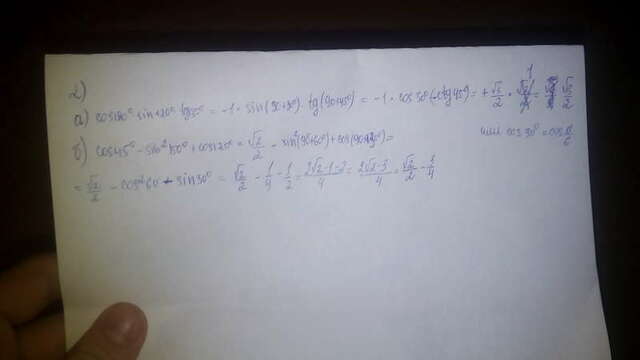 2)
а) cos180° sin120° tg135° = -1 · sin(90+30°) · tg(90+45°) = -1 · cos30° (-ctg45°) = + √3/2 · 1 = √3/2
или cos 30° = cos π/6
б) cos45° - sin²150° + cos120° = √2/2 - sin²(90+60°) + cos(90+30°) =
= √2/2 - cos²60 - sin30° = √2/2 - 1/4 - 1/2 = 2√2-1-2/4 = 2√2-3/4 = √2/2 - 3/4